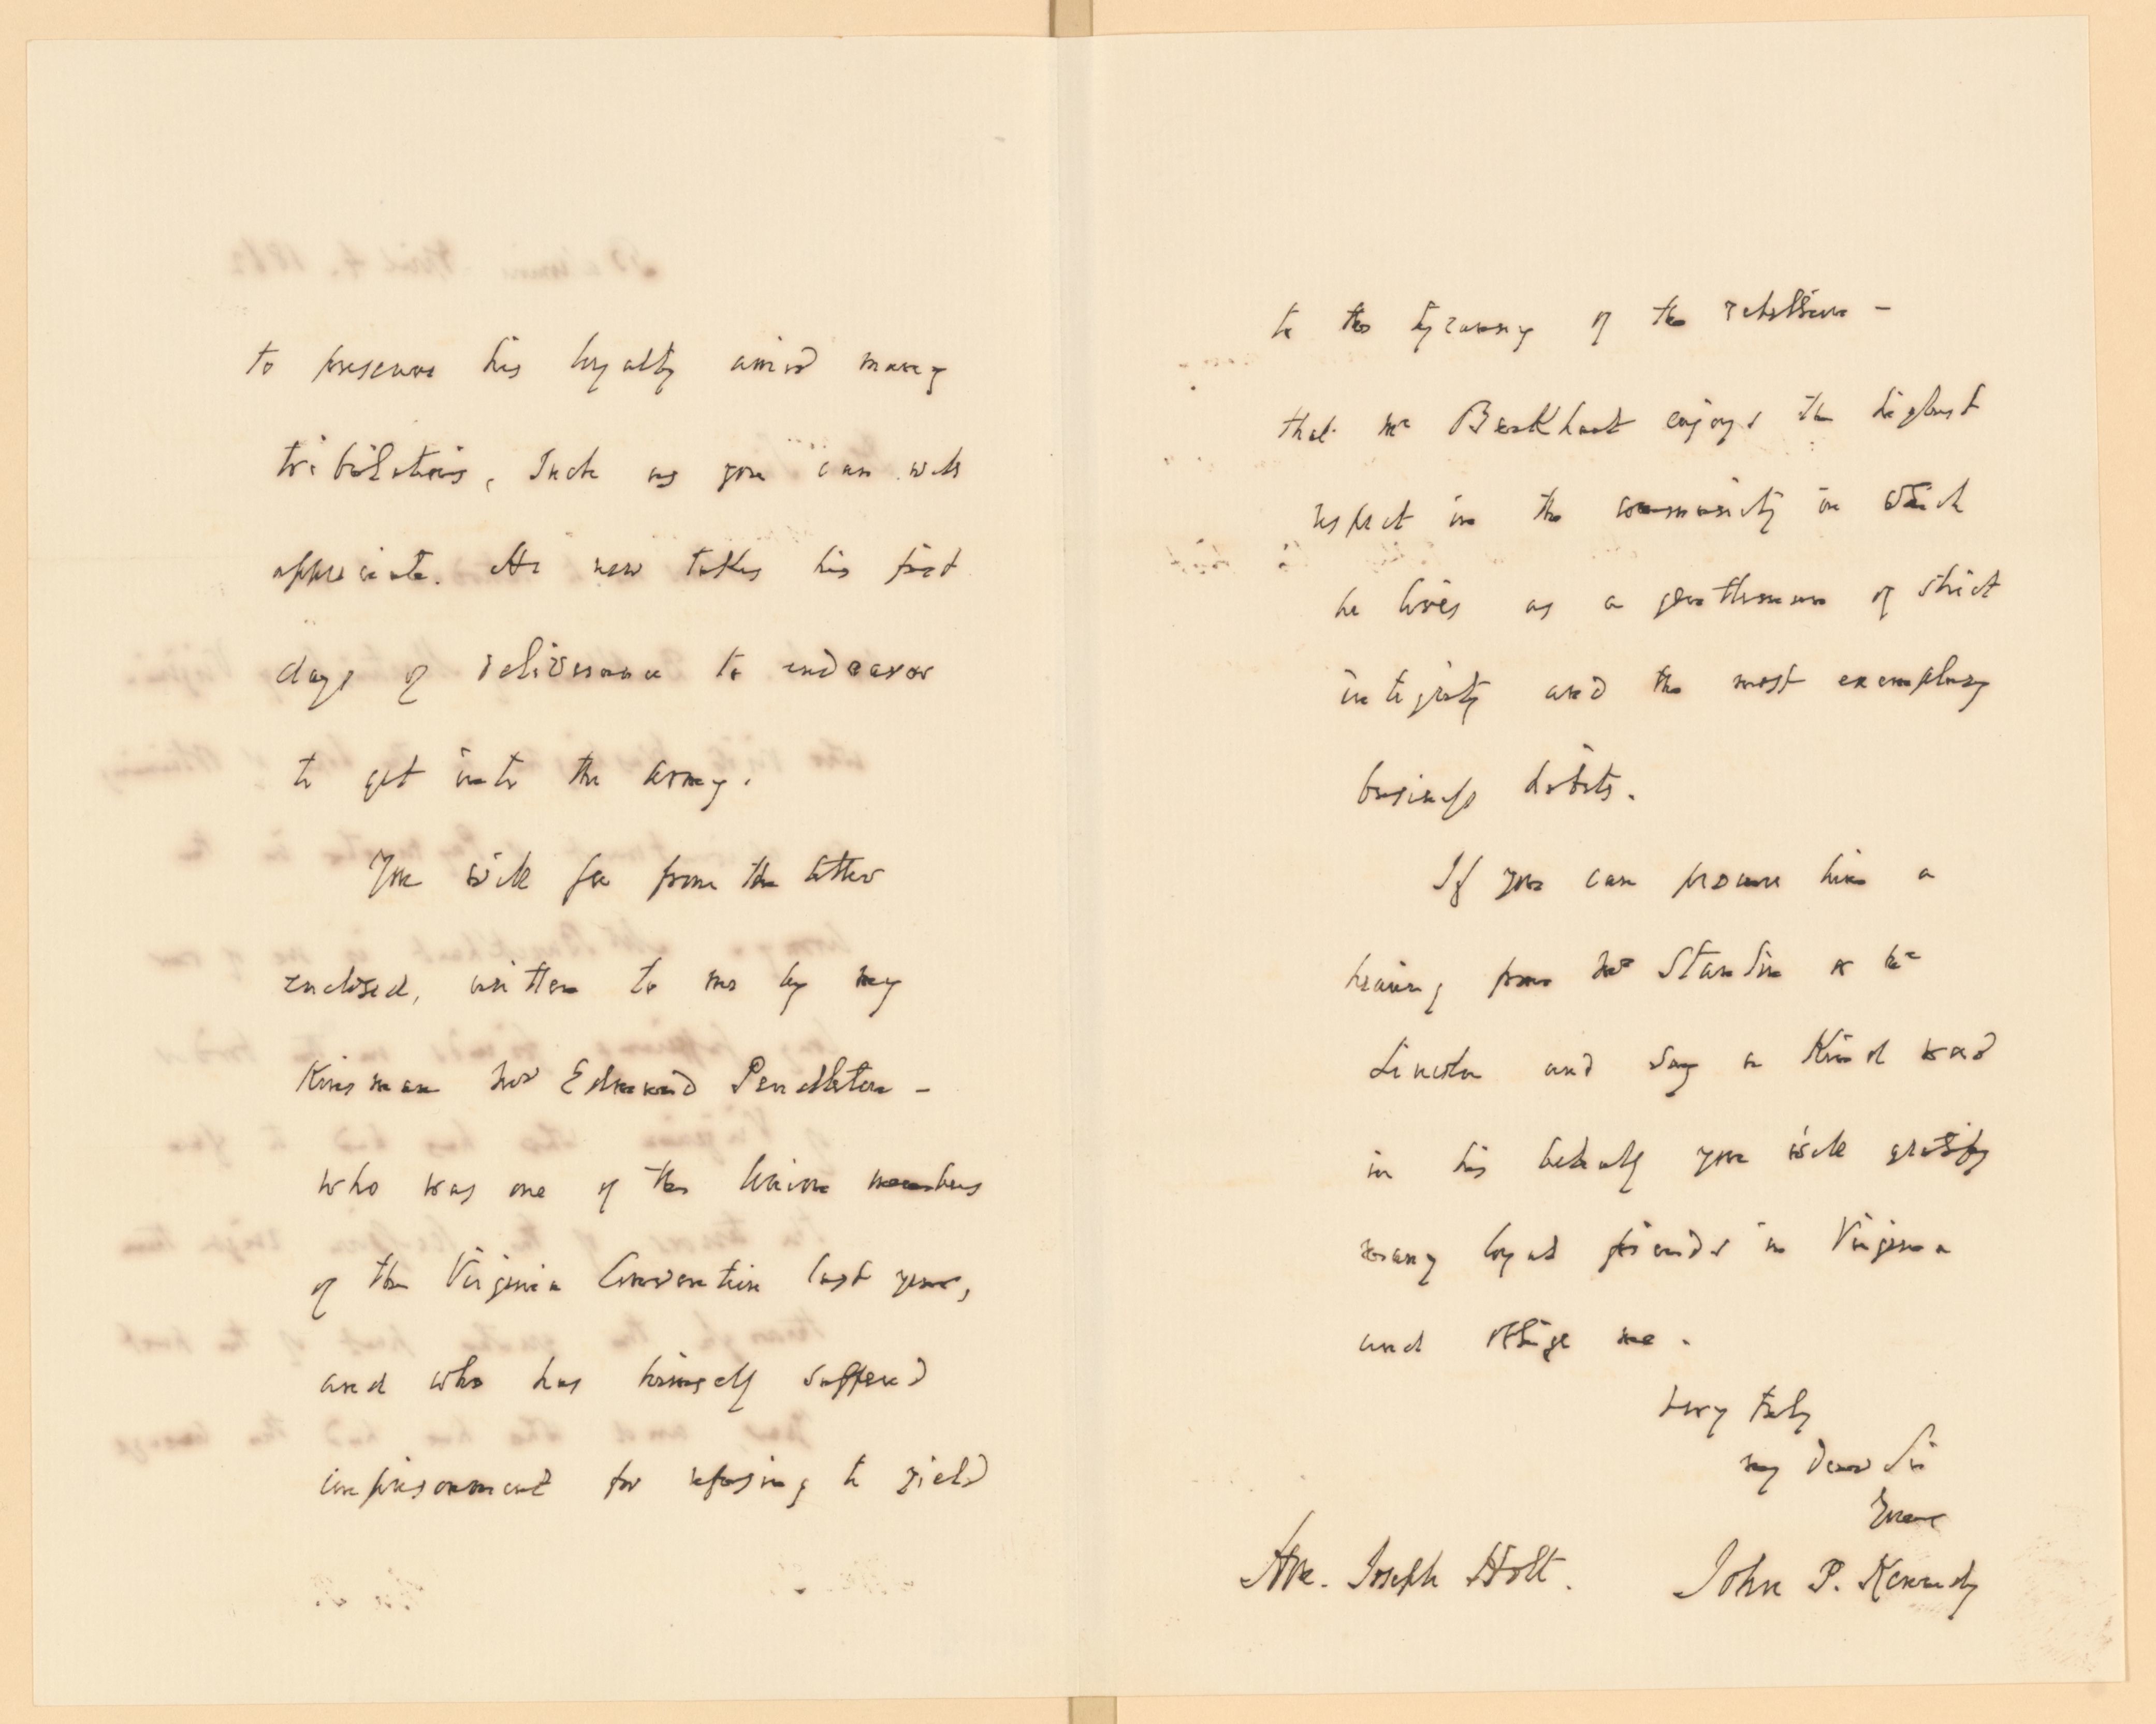 to preserve his loyalty amid many
tribulations, Such as you can well
appreciate. He now takes his first
days of deliverance to endeavor
to get into the army.
You will see from the letter
enclosed, written to me by my
Kinsman Mr Edmund Pendleton -
who was one of the Union members
of the Virginia Convention last year,
and who has himself suffered
imprisonment for refusing to yield
to the tyranny of the rebellion -
that Mr Burkhart enjoys the highest
respect in the community in which
he lives as a gentleman of strict
integrity and the most exemplary
business habits.
If you can procure him a
hearing from Mr Stanton or Mr
Lincoln and say a Kind word
in his behalf you will gratify
many loyal friends in Virginia
and oblige me.
Very truly
my Dear Sir
Yours
Hon. Joseph Holt. John P. Kennedy